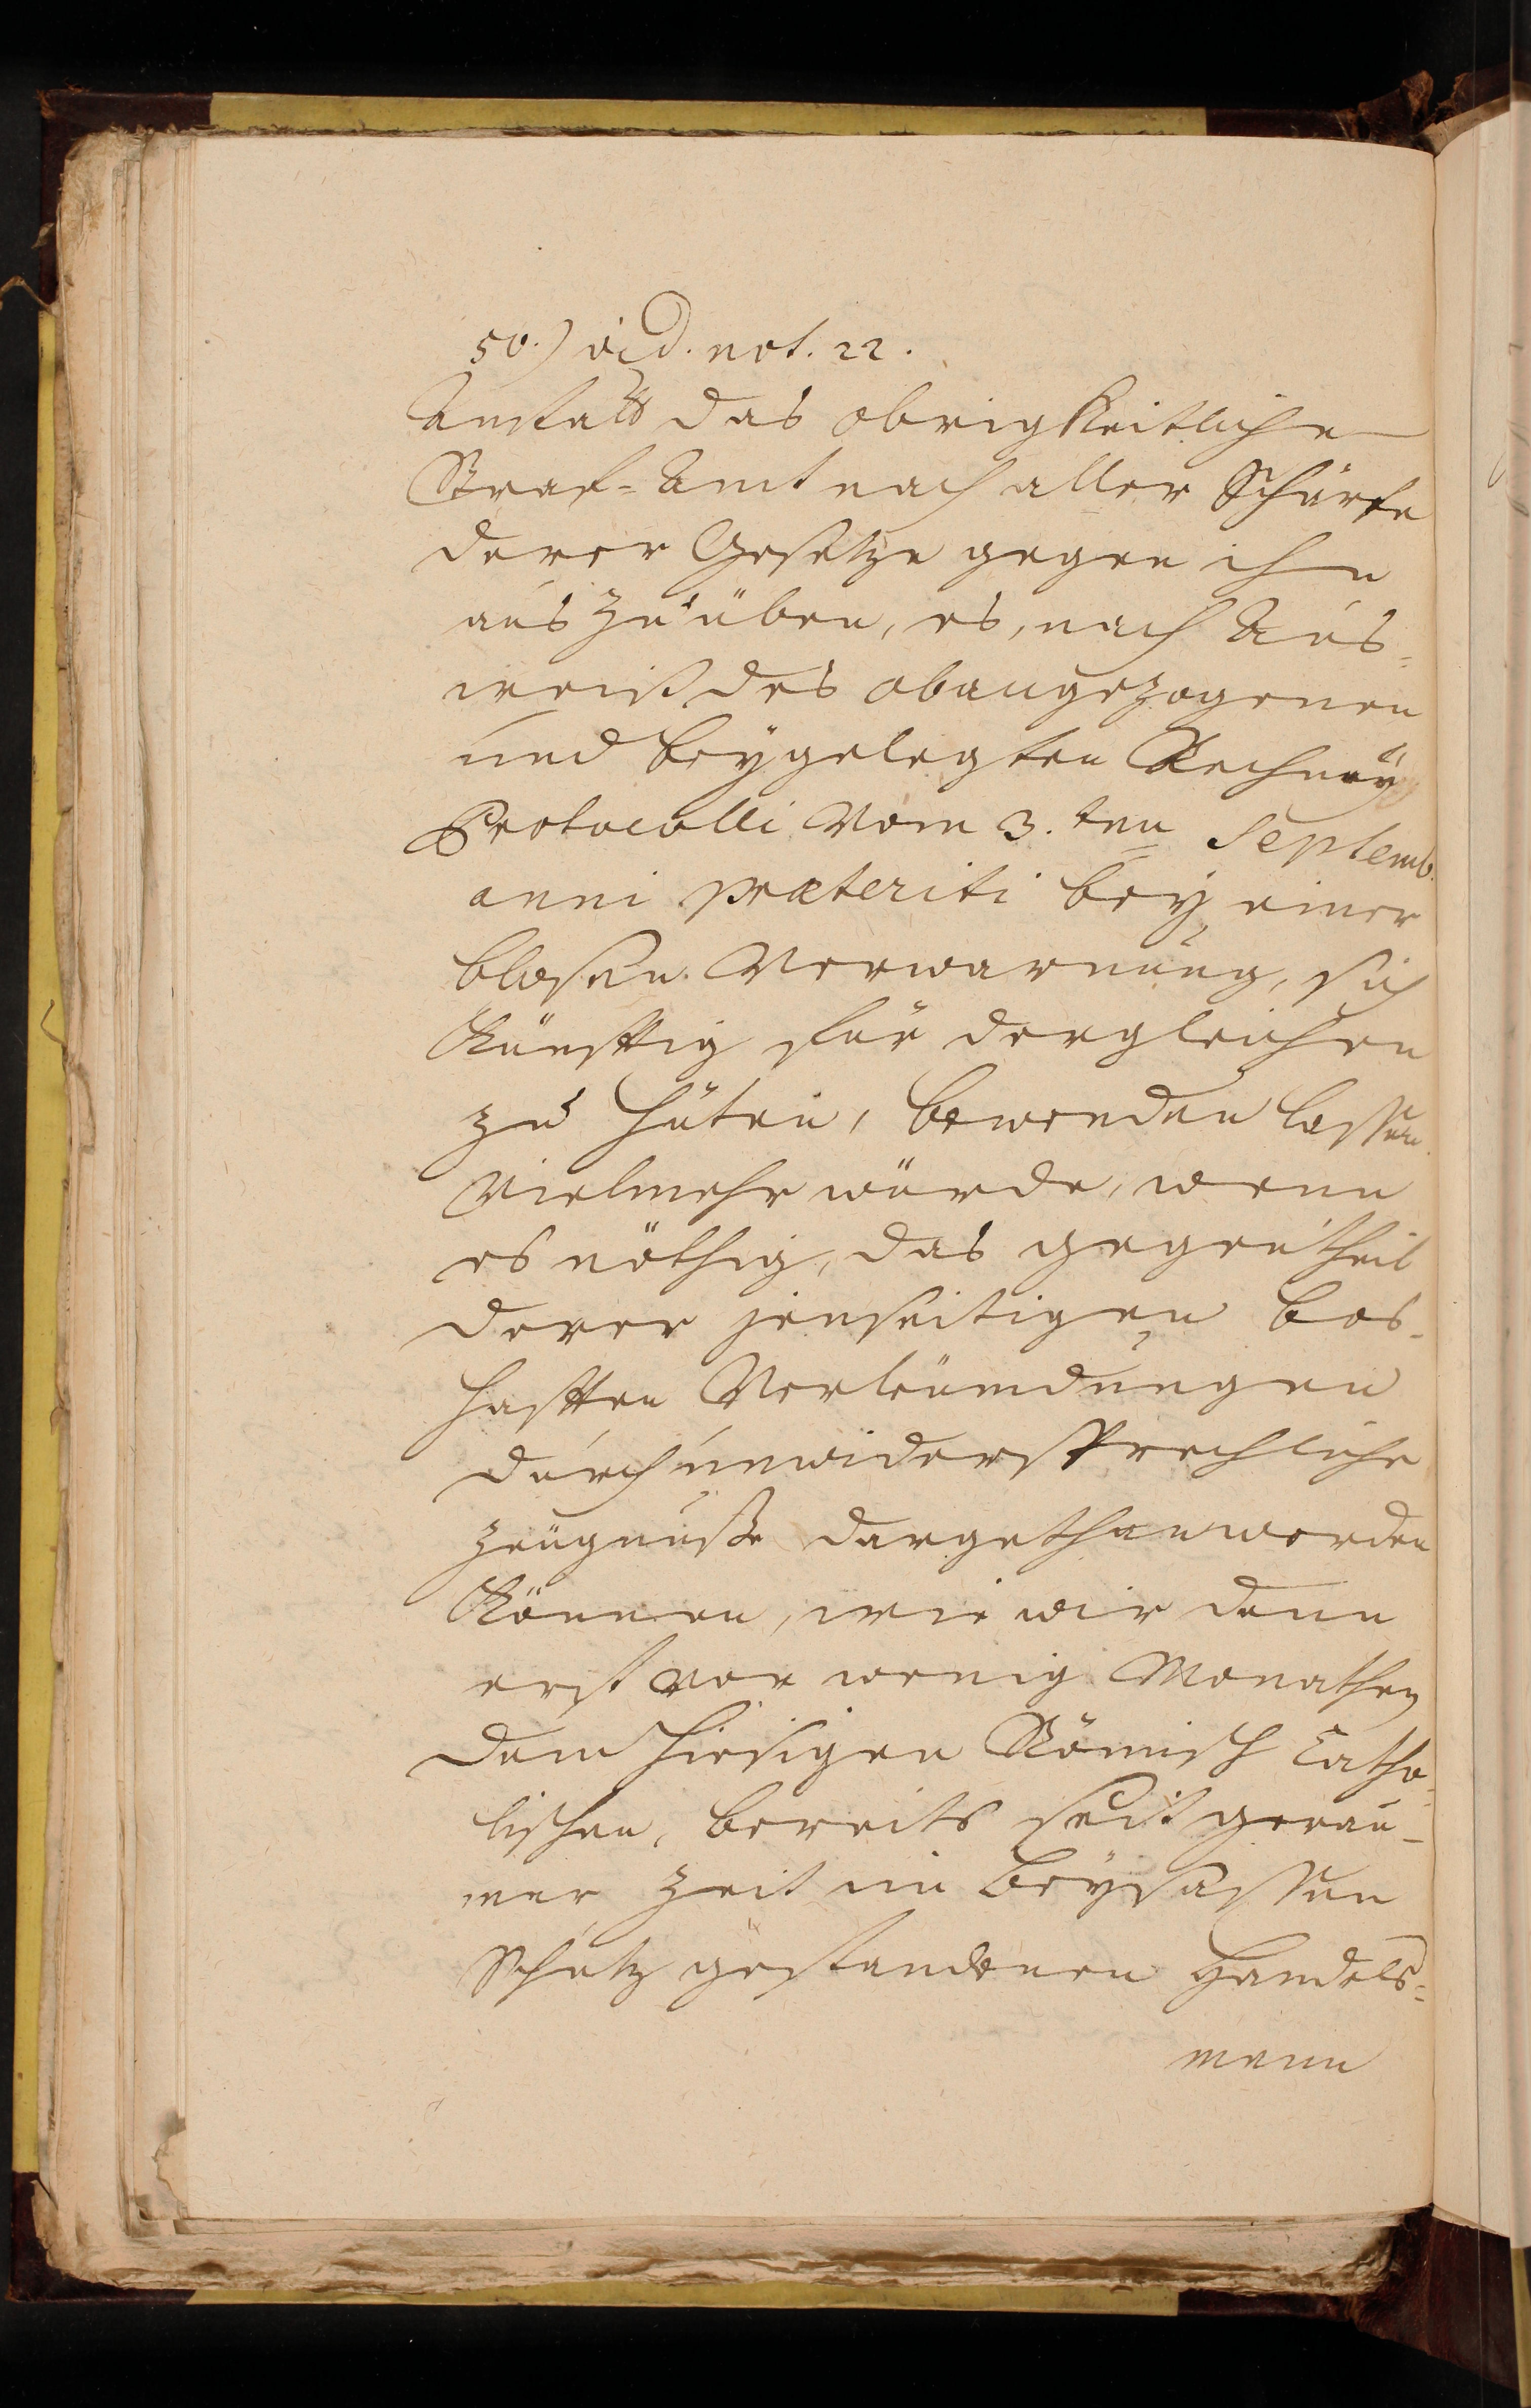 50.) vid. not. 22.
Anstatt das obrigkeitliche
Straf-Amt nach aller Schärfe
derer Gesetze gegen ihn
auszuüben, es, nach Aus=
weiß des obangezogenen
und beygelegten Rechney
Protocolli vom 3.ten Septemb.
anni præteriti bey einer
blosen Verwarnung, sich
künfftig für dergleichen
zu hüten, bewenden lassen.
Vielmehr würde, wenn
es nöthig, das gegentheil
derer jenseitigen bos=
hafften Verleumdungen
durch unwidersprechliche
Zeugnuße dargethan werden
können, wie wir denn
erst vor wenig Monathen
dem hiesigen Römisch Catho=
lischen, bereits seit gerau=
mer Zeit im Beysassen
Schutz gestandenen Handels=
mann